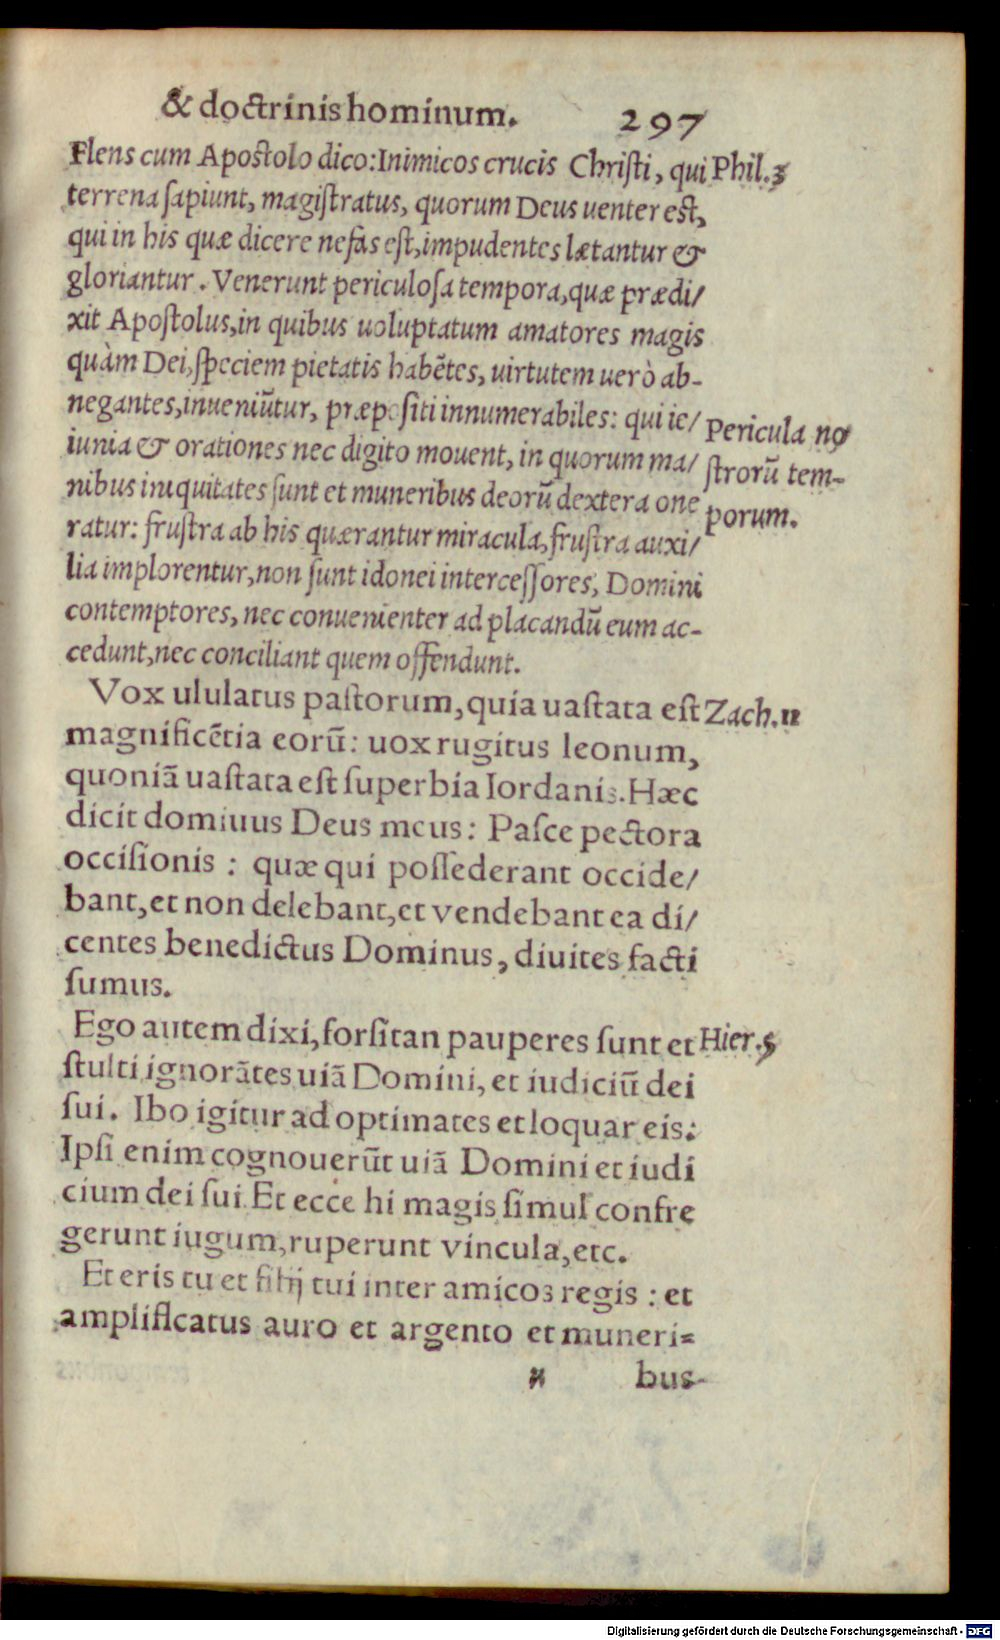 & doctrinis hominum. 297
Flens cum Apostolo dico: Inimicos crucis Christi, qui Phil.3
terrena sapiunt, magistratus, quorum Deus uenter est,
qui in his quæ dicere nefas est, impudentes lætantur &
gloriantur. Venerunt periculosa tempora, quæ prædi/
xit Apostolus, in quibus uoluptatum amatores magis
quàm Dei, speciem pietatis habẽtes, uirtutem uerò ab-
negantes, inueniũtur, præpositi innumerabiles: qui ie/
iunia & orationes nec digito mouent, in quorum ma/
nibus iniquitates sunt et muneribus deorũ dextera one
ratur: frustra ab his quærantur miracula, frustra auxi/
lia implorentur, non sunt idonei intercessores, Domini
contemptores, nec conuenienter ad placandũ eum ac-
cedunt, nec conciliant quem offendunt.
Pericula no
strorũ tem-
porum.
Vox ululatus pastorum, quia uastata est Zach.11
magnificẽtia eorũ: uox rugitus leonum,
quoniã uastata est superbia Iordanis. Hæc
dicit domiuus Deus meus: Pasce pectora
occisionis: quæ qui possederant occide/
bant, et non delebant, et vendebant ea di/
centes benedictus Dominus, diuites facti
sumus.
Ego autem dixi, forsitan pauperes sunt et Hier.5
stulti ignorãtes uiã Domini, et iudiciũ dei
sui. Ibo igitur ad optimates et loquar eis:
Ipsi enim cognouerũt uiã Domini et iudi
cium dei sui. Et ecce hi magis simul confre
gerunt iugum, ruperunt vincula, etc.
Et eris tu et filij tui inter amicos regis: et
amplificatus auro et argento et muneri=
bus-
Digitalisierung gefördert durch die Deutsche Forschungsgemeinschaft - DFG